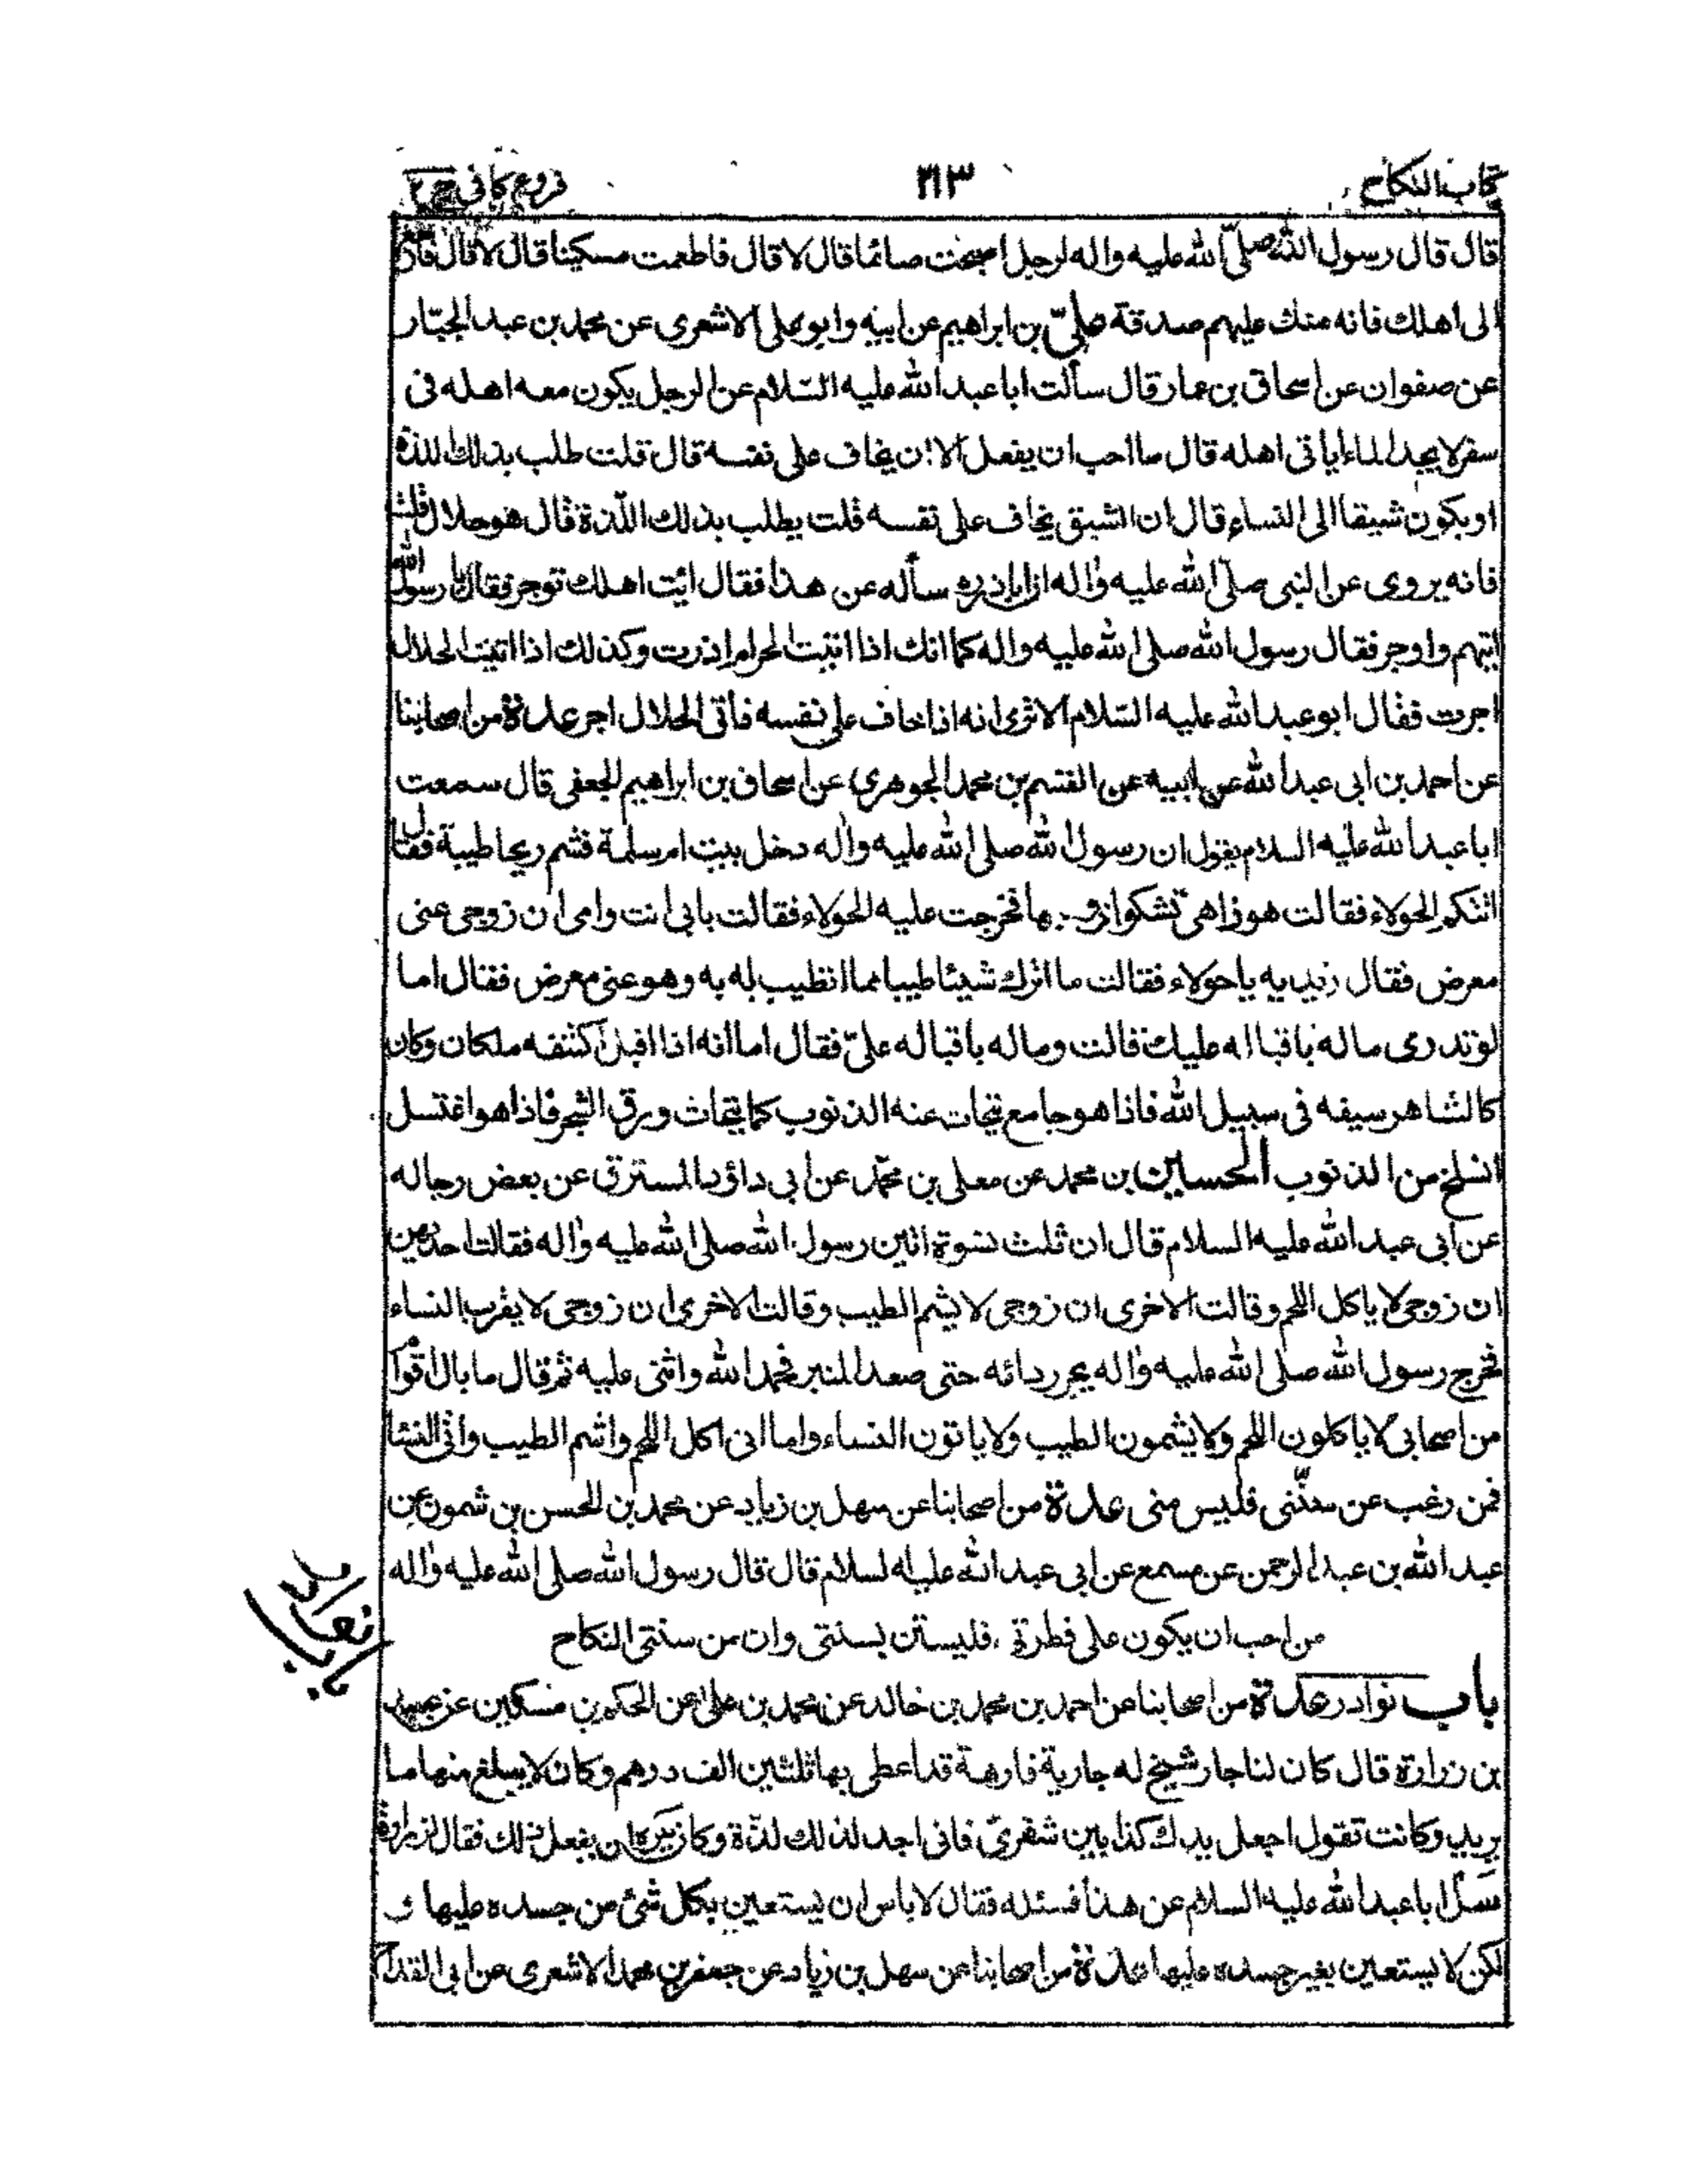 كتاب النكاح ٢١٣ فروع كافى ج ٢
قال قال رسول الله صلى الله عليه واله لرجل اصبحت صائما قال لا قال فاطعمت مسكينا قال لا قال
الى اهلك فانه منك عليهم صدقة علىّ بن ابراهيم عن ابيه وابو على الاشعرى عن محمد بن عبد الجبّار
عن صفوان عن اسحاق بن عمار قال سألت ابا عبد الله عليه السّلام عن الرجل يكون معه اهله فى
سفر لا يجد الماء اياتى اهله قال ما احب ان يفعل الا ان يخاف على نفسه قال قلت طلب بذلك اللذة
او يكون شبقا الى النساء قال ان الشبق يخاف على نفسه قلت يطلب بذلك اللّذة قال هو حلال قلت
فانه يروى عن النبى صلّى الله عليه واله ان اباذر ره سأله عن هذا فقال ائت اهلك توجر فقال يا رسول الله
اتيهم واوجر فقال رسول الله صلى الله عليه واله كما انك اذا اتيت الحرام ازرت وكذلك اذا اتيت الحلال
اجرت فقال ابو عبد الله عليه السّلام الا ترى انه اذا خاف على نفسه فأتى الحلال اجر عدة من اصحابنا
عن احمد بن ابى عبد الله عن ابيه عن القسم بن محمد الجوهرى عن اسحاق بن ابراهيم الجعفى قال سمعت
ابا عبد الله عليه السلام يقول ان رسول الله صلى الله عليه واله دخل بيت ام سلمة فشم ريحا طيبة فقال
اتتكم الحولاء فقالت هوذا هى تشكوا زوجها فخرجت عليه الحولاء فقالت بابى انت وامى ان زوجى عنى
معرض فقال زيديه يا حولاء فقالت ما اترك شيئا طيبا مما اتطيب له به وهو عنى معرض فقال اما
لو تدرى ما له باقباله عليك قالت وماله باقباله علىّ فقال اما انه اذا اقبل اكتنفه ملكان وكان
كالشاهر سيفه فى سبيل الله فاذا هو جامع تتحات عنه الذنوب كما يتحاث ورق الشجر فاذا هو اغتسل
انسلخ من الذنوب الحسين بن محمد عن معلى بن محمّد عن ابى داؤد المسترق عن بعض رجاله
عن ابى عبد الله عليه السلام قال ان ثلث نسوة اتين رسول الله صلى الله عليه واله فقالت احديهن
ان زوجى لا ياكل اللحم وقالت الاخرى ان زوجى لا يشم الطيب وقالت الاخرى ان زوجى لا يقرب النساء
فخرج رسول الله صلى الله عليه واله يجر ردائه حتى صعد المنبر فحمد الله واثنى عليه ثم قال ما بال اقوام
من اصحابى لا ياكلون اللحم ولا يشمون الطيب ولا ياتون النساء واما انى اكل اللحم واشم الطيب واتى النساء
فمن رغب عن سنّتى فليس منى عدة من اصحابنا عن سهل بن زياد عن محمد بن الحسن بن شمون عن
عبد الله بن عبد الرحمن عن مسمع عن ابى عبد الله عليه السلام قال قال رسول الله صلى الله عليه واله
من احب ان يكون على فطرتى فليستن بسنتى وان من سنتى النكاح
باب نوادر عدة من اصحابنا عن احمد بن محمد بن خالد عن محمد بن على عن الحكم بن مسكين عن عبيد
بن زرارة قال كان لنا جار شيخ له جارية فارهة قد اعطى بها ثلثين الف درهم وكان لا يبلغ منها ما
يريد وكانت تقول اجعل يدك كذا بين شفرىّ فانى اجد لذلك لذّة وكان يكره ان يفعل ذلك فقال لزرارة
سل ابا عبد الله عليه السلام عن هذا فسئله فقال لا باس ان يستعين بكل شئ من جسده عليها و
لكن لا يستعين بغير جسده عليها عدة من اصحابنا عن سهل بن زياد عن جعفر بن محمد الاشعرى عن ابى القداح